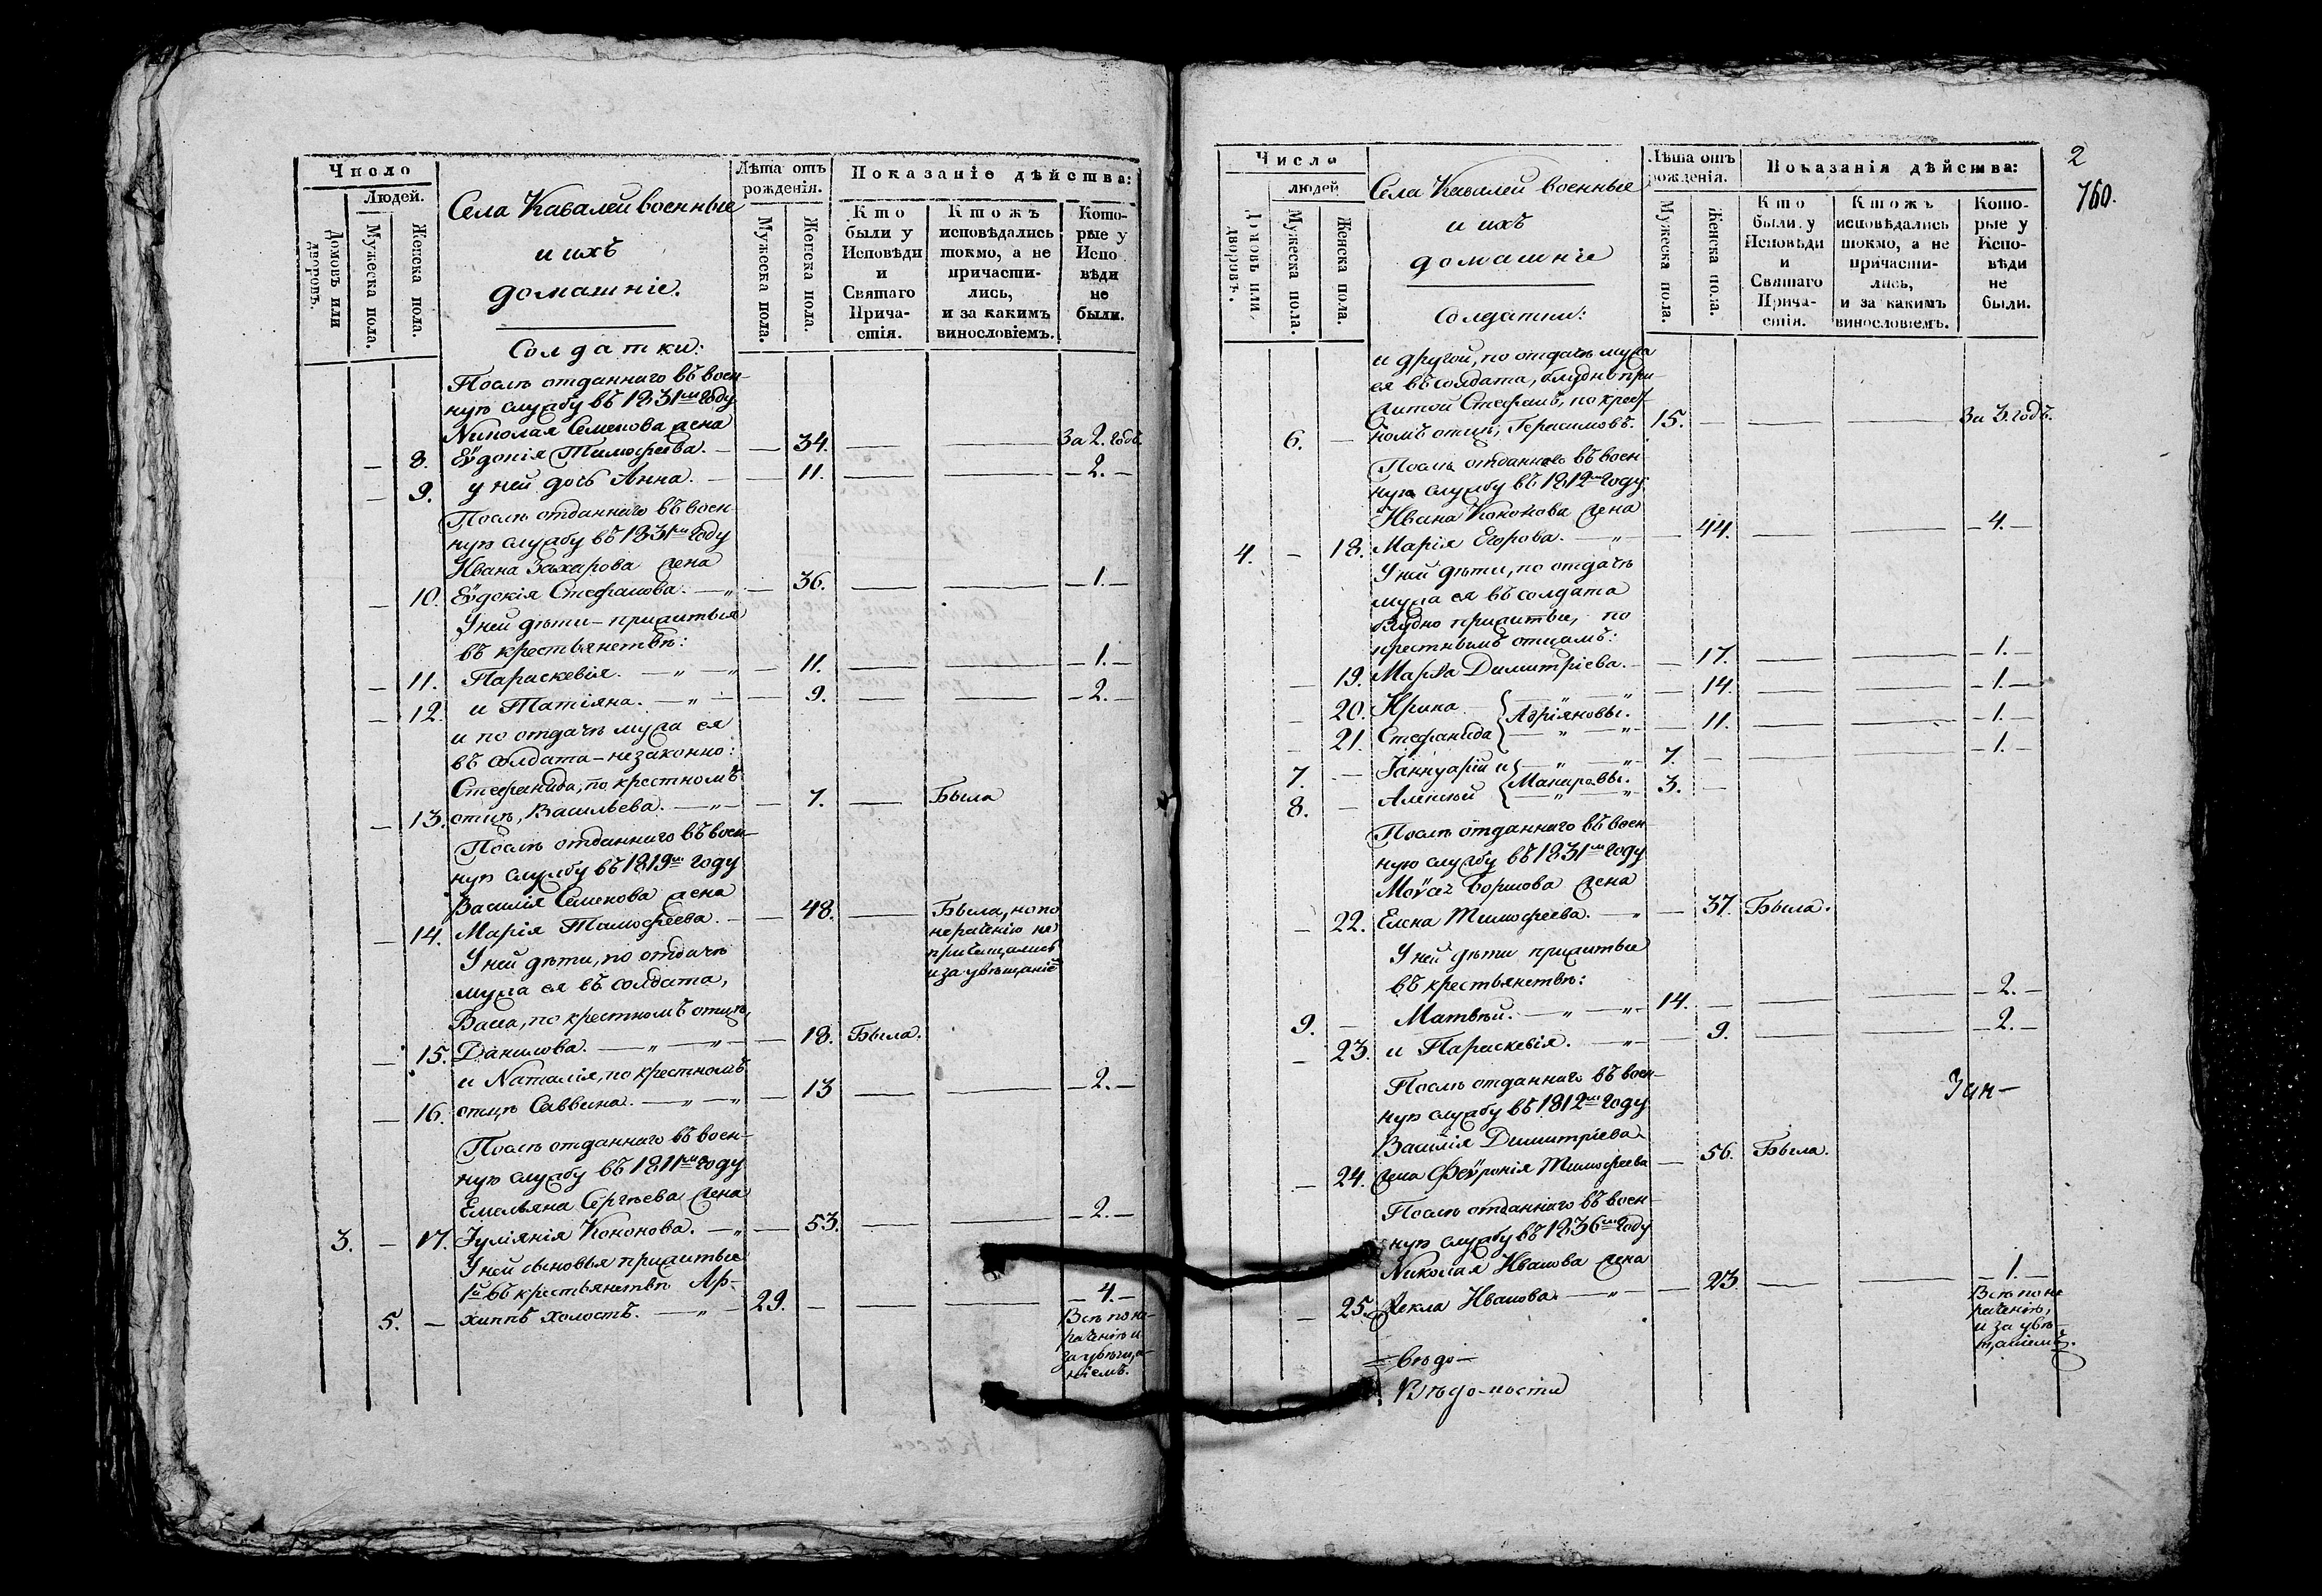 Число
Людей.
Домовъ или дворовъ.
Мужеска пола.
Женска пола.
Села Кавалей военные
и ихъ
домашніе.
Лѣта отъ рожденія.
Мужеска пола.
Женска пола.
Показаніе дѣйства:
Кто были у Исповѣди и Святаго Причастія.
Ктожъ исповѣдались токмо, а не причастились, и за какимъ винословіемъ.
Которые у Исповѣди не были.
Солдатки:
Послѣ отданнаго въ воен-
ную службу въ 1831мъ году
Николая Семенова жена
8. Еѵдокія Тимофеева. — 34. — — За 2. годъ.
9. у ней дочь Анна. — 11. — — 2. —
Послѣ отданнаго въ воен-
ную службу въ 1831мъ году
Ивана Захарова жена
10. Еѵдокія Стефанова. — 36. — — 1. —
У ней дѣти – прижитыя
въ крестьянствѣ:
11. Параскевія. — 11. — — 1. —
12. и Татіяна. — 9. — — 2. —
и по отдачѣ мужа ея
въ солдата – незаконно:
Стефанида, по крестномъ
13. отцѣ, Васильева. — 7. — Была
Послѣ отданнаго въ воен-
ную службу въ 1819мъ году
Василія Семенова жена
14. Марія Тимофеева. — 48. — Была, но по
нераченію не
причащались
и за увѣщаніе
У ней дѣти, по отдачѣ
мужа ея въ солдата,
Васса, по крестномъ отцѣ,
15. Данилова. — 18. Была.
и Наталія, по крестномъ
16. отцѣ Саввина. — 13 — — 2. —
Послѣ отданнаго въ воен-
ную службу въ 1811мъ году
Емельяна Сергѣева жена
3. — 17. Іуліянія Кононова. — 53. — — 2. —
У ней сыновья прижитые
1й въ крестьянствѣ Ар-
5. — хиппъ холостъ. — 29. — — — 4. —
Всѣ по не-
раченію и
за увѣща-
ніемъ.
2
760.
Число
людей
Домовъ или дворовъ.
Мужеска пола.
Женска пола.
Села Кавалей военные
и ихъ
домашніе
Лѣта отъ рожденія.
Мужеска пола.
Женска пола.
Показанія дѣйства:
Кто были у Исповѣди и Святаго Причастія.
Ктожъ исповѣдались токмо, а не причастились, и за какимъ винословіемъ.
Которые у Исповѣди не были.
Солдатки:
и другой, по отдачѣ мужа
ея въ солдата, блудно при-
житой Стефанъ, по крест-
6. — номъ отцѣ, Герасимовъ. 15. — — — За 3. годъ.
Послѣ отданнаго въ воен-
ную службу въ 1812мъ году
Ивана Кононова жена
4. — 18. Марія Егорова. — 44. — — 4. —
У ней дѣти, по отдачѣ
мужа ея въ солдата
блудно прижитые, по
крестнымъ отцамъ:
19. Марѳа Димитріева. — 17. — — 1. —
20. Ирина — 14. — — 1. —
Адріяновы.
21. Стефанида — 11. — — 1. —
7. — Іаннуарій и — 7. — — — 1. —
Макаровы.
8. — Алексѣй — 3. —
Послѣ отданнаго въ воен-
ную службу въ 1831мъ году
Моѵсея Борисова жена
22. Елена Тимофеева. — 37. Была.
У ней дѣти прижитые
въ крестьянствѣ:
9. — Матвѣй. — 14. — — — 2. —
23. и Параскевія. — 9. — — 2. —
Послѣ отданнаго въ воен-
ную службу въ 1812мъ году
Василія Димитріева
24. жена Феѵронія Тимофеева — 56. Была.
Послѣ отданнаго въ воен-
ную службу въ 1836мъ году
Николая Иванова жена
25. Ѳекла Иванова. — 23 — — 1. —
Всѣ по не
раченію,
и за увѣ-
щаніемъ.
— вѣдо —
Вѣдо-мости